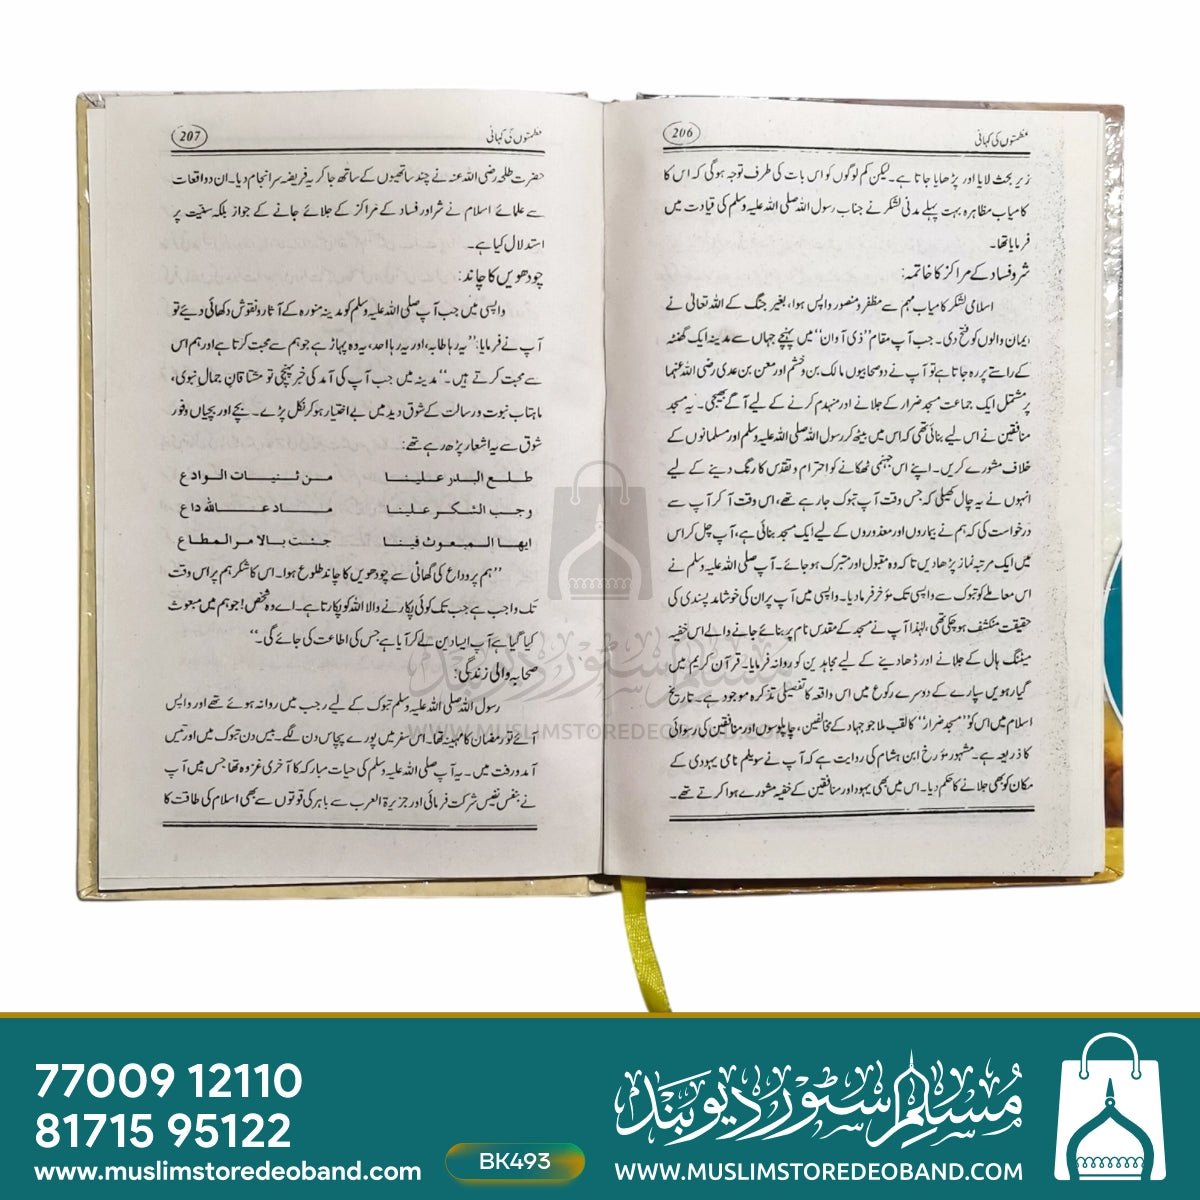 عظمتوں کی کہانی
206
زیر بحث لایا اور پڑھایا جاتا ہے۔ لیکن کم لوگوں کو اس بات کی طرف توجہ ہوگی کہ اس کا
کامیاب مظاہرہ بہت پہلے مدنی لشکر نے جناب رسول اللہ صلی اللہ علیہ وسلم کی قیادت میں
فرمایا تھا۔
شر و فساد کے مراکز کا خاتمہ:
اسلامی لشکر کامیاب مہم سے مظفر و منصور واپس ہوا، بغیر جنگ کے اللہ تعالیٰ نے
ایمان والوں کو فتح دی۔ جب آپ مقام ”ذی آوان“ میں پہنچے جہاں سے مدینہ ایک گھنٹہ
کے راستے پر رہ جاتا ہے تو آپ نے دو صحابیوں مالک بن دُخشم اور معن بن عدی رضی اللہ عنہما
پر مشتمل ایک جماعت مسجد ضرار کے جلانے اور منہدم کرنے کے لیے آگے بھیجی۔ یہ مسجد
منافقین نے اس لیے بنائی تھی کہ اس میں بیٹھ کر رسول اللہ صلی اللہ علیہ وسلم اور مسلمانوں کے
خلاف مشورے کریں۔ اپنے اس جہنمی ٹھکانے کو احترام و تقدس کا رنگ دینے کے لیے
انہوں نے یہ چال کھیلی کہ جس وقت آپ تبوک جا رہے تھے، اس وقت آ کر آپ سے
درخواست کی کہ ہم نے بیماروں اور معذوروں کے لیے ایک مسجد بنائی ہے، آپ چل کر اس
میں ایک مرتبہ نماز پڑھا دیں تاکہ وہ مقبول اور متبرک ہو جائے۔ آپ صلی اللہ علیہ وسلم نے
اس معاملے کو تبوک سے واپسی تک مؤخر فرما دیا۔ واپسی میں آپ پر ان کی خوشامد پسندی کی
حقیقت منکشف ہو چکی تھی، لہٰذا آپ نے مسجد کے مقدس نام پر بنائے جانے والے اس خفیہ
میٹنگ ہال کے جلانے اور ڈھا دینے کے لیے مجاہدین کو روانہ فرمایا۔ قرآن کریم میں
گیارہویں سپارے کے دوسرے رکوع میں اس واقعہ کا تفصیلی تذکرہ موجود ہے۔ تاریخ
اسلام میں اس کو ”مسجد ضرار“ کا لقب ملا جو جہاد کے مخالفین، چاپلوسوں اور منافقین کی رسوائی
کا ذریعہ ہے۔ مشہور مؤرخ ابن ہشام کی روایت ہے کہ آپ نے سویلم نامی یہودی کے
مکان کو بھی جلانے کا حکم دیا۔ اس میں بھی یہود اور منافقین کے خفیہ مشورے ہوا کرتے تھے۔
عظمتوں کی کہانی
207
حضرت طلحہ رضی اللہ عنہ نے چند ساتھیوں کے ساتھ جا کر یہ فریضہ سرانجام دیا۔ ان دو واقعات
سے علمائے اسلام نے شر اور فساد کے مراکز کے جلائے جانے کے جواز بلکہ سنّیت پر
استدلال کیا ہے۔
چودھویں کا چاند:
واپسی میں جب آپ صلی اللہ علیہ وسلم کو مدینہ منورہ کے آثار و نقوش دکھائی دیے تو
آپ نے فرمایا: ”یہ رہا طابہ، اور یہ رہا احد، یہ وہ پہاڑ ہے جو ہم سے محبت کرتا ہے اور ہم اس
سے محبت کرتے ہیں۔“ مدینہ میں جب آپ کی آمد کی خبر پہنچی تو مشتاقانِ جمالِ نبوی،
ماہتاب نبوت و رسالت کے شوق دید میں بے اختیار ہو کر نکل پڑے۔ بچے اور بچیاں وفور
شوق سے یہ اشعار پڑھ رہے تھے:
طلع البدر علينا من ثنيات الوادع
وجب الشكر علينا ما دعا لله داع
ايها المبعوث فينا جئت بالامر المطاع
”ہم پر وداع کی گھاٹی سے چودھویں کا چاند طلوع ہوا۔ اس کا شکر ہم پر اس وقت
تک واجب ہے جب تک کوئی پکارنے والا اللہ کو پکارتا ہے۔ اے وہ شخص! جو ہم میں مبعوث
کیا گیا ہے آپ ایسا دین لے کر آیا ہے جس کی اطاعت کی جائے گی۔“
صحابہ والی زندگی:
رسول اللہ صلی اللہ علیہ وسلم تبوک کے لیے رجب میں روانہ ہوئے تھے اور واپس
آئے تو رمضان کا مہینہ تھا۔ اس سفر میں پورے پچاس دن لگے۔ بیس دن تبوک میں اور تیس
آمد و رفت میں۔ یہ آپ صلی اللہ علیہ وسلم کی حیات مبارکہ کا آخری غزوہ تھا جس میں آپ
نے بنفس نفیس شرکت فرمائی اور جزیرۃ العرب سے باہر کی قوتوں سے بھی اسلام کی طاقت کا
مسلم سٹور دیوبند
WWW.MUSLIMSTOREDEOBAND.COM
77009 12110
81715 95122
www.muslimstoredeoband.com
BK493
مسلم سٹور دیوبند
WWW.MUSLIMSTOREDEOBAND.COM